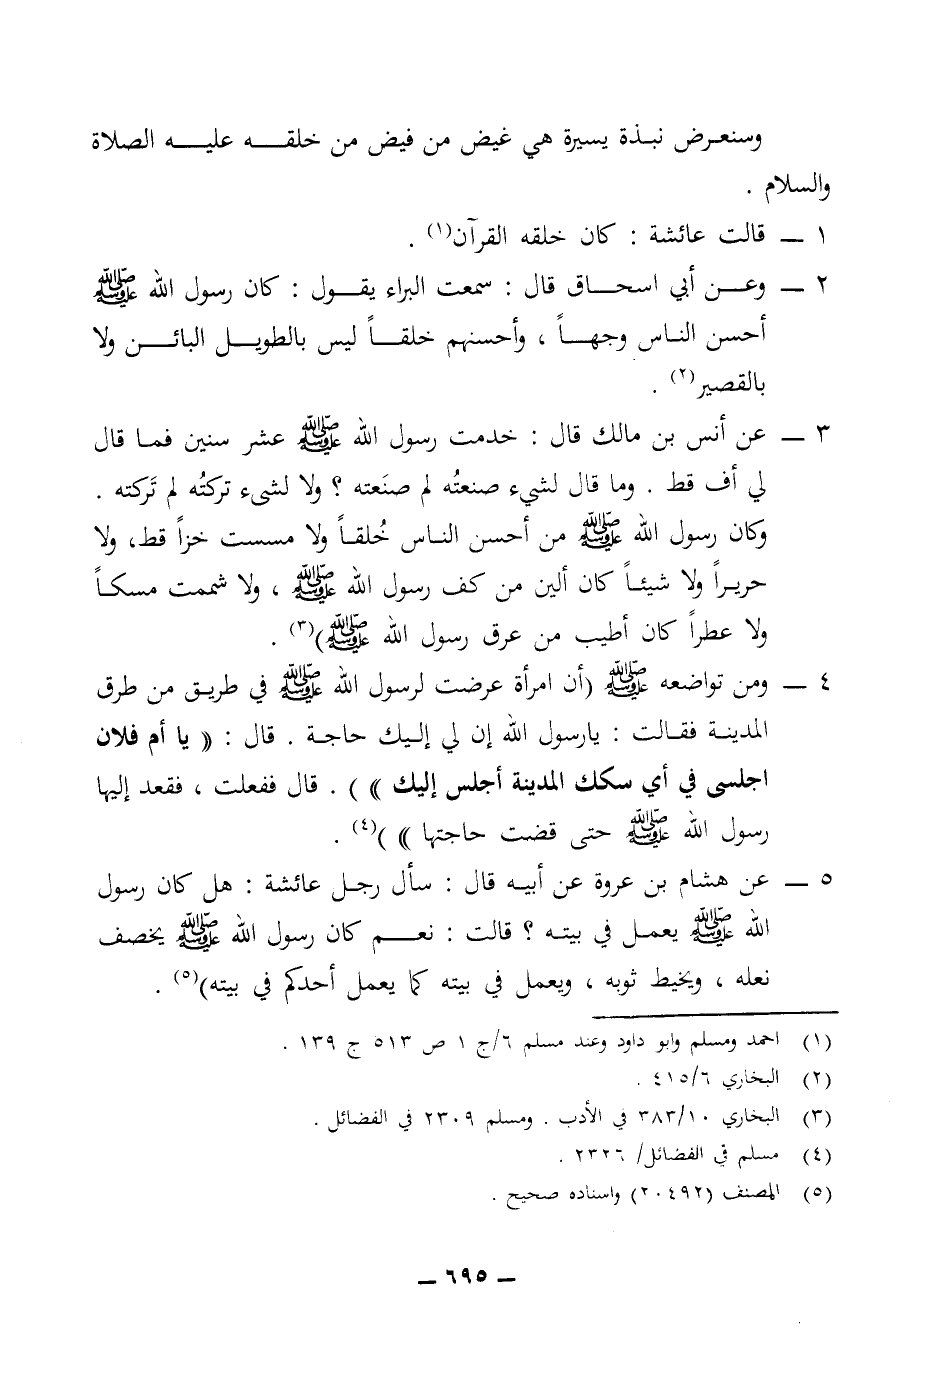 وسنعرض نبذة يسيرة هي غيض من فيض من خلقه عليه الصلاة
والسلام .
١ ــ قالت عائشة : كان خلقه القرآن(١) .
٢ ــ وعن أبي اسحاق قال : سمعت البراء يقول : كان رسول الله ﷺ
أحسن الناس وجهاً ، وأحسنهم خلقاً ليس بالطويل البائن ولا
بالقصير(٢) .
٣ ــ عن أنس بن مالك قال : خدمت رسول الله ﷺ عشر سنين فما قال
لي أف قط . وما قال لشيء صنعتُه لم صنَعته ؟ ولا لشىء تركتُه لم تَركته .
وكان رسول الله ﷺ من أحسن الناس خُلقاً ولا مسست خزاً قط، ولا
حريراً ولا شيئاً كان ألين من كف رسول الله ﷺ ، ولا شممت مسكاً
ولا عطراً كان أطيب من عرق رسول الله ﷺ)(٣) .
٤ ــ ومن تواضعه ﷺ (أن امرأة عرضت لرسول الله ﷺ في طريق من طرق
المدينة فقالت : يارسول الله إن لي إليك حاجة . قال : « يا أم فلان
اجلسى في أي سكك المدينة أجلس إليك » ) . قال ففعلت ، فقعد إليها
رسول الله ﷺ حتى قضت حاجتها » )(٤) .
٥ ــ عن هشام بن عروة عن أبيه قال : سأل رجل عائشة : هل كان رسول
الله ﷺ يعمل في بيته ؟ قالت : نعم كان رسول الله ﷺ يخصف
نعله ، ويخيط ثوبه ، ويعمل في بيته كما يعمل أحدكم في بيته)(٥) .
(١) احمد ومسلم وابو داود وعند مسلم ٦/ج ١ ص ٥١٣ ج ١٣٩ .
(٢) البخاري ٤١٥/٦ .
(٣) البخاري ٣٨٣/١٠ في الأدب . ومسلم ٢٣٠٩ في الفضائل .
(٤) مسلم في الفضائل/ ٢٣٢٦ .
(٥) المصنف (٢٠٤٩٢) واسناده صحيح .
ــ ٦٩٥ ــ